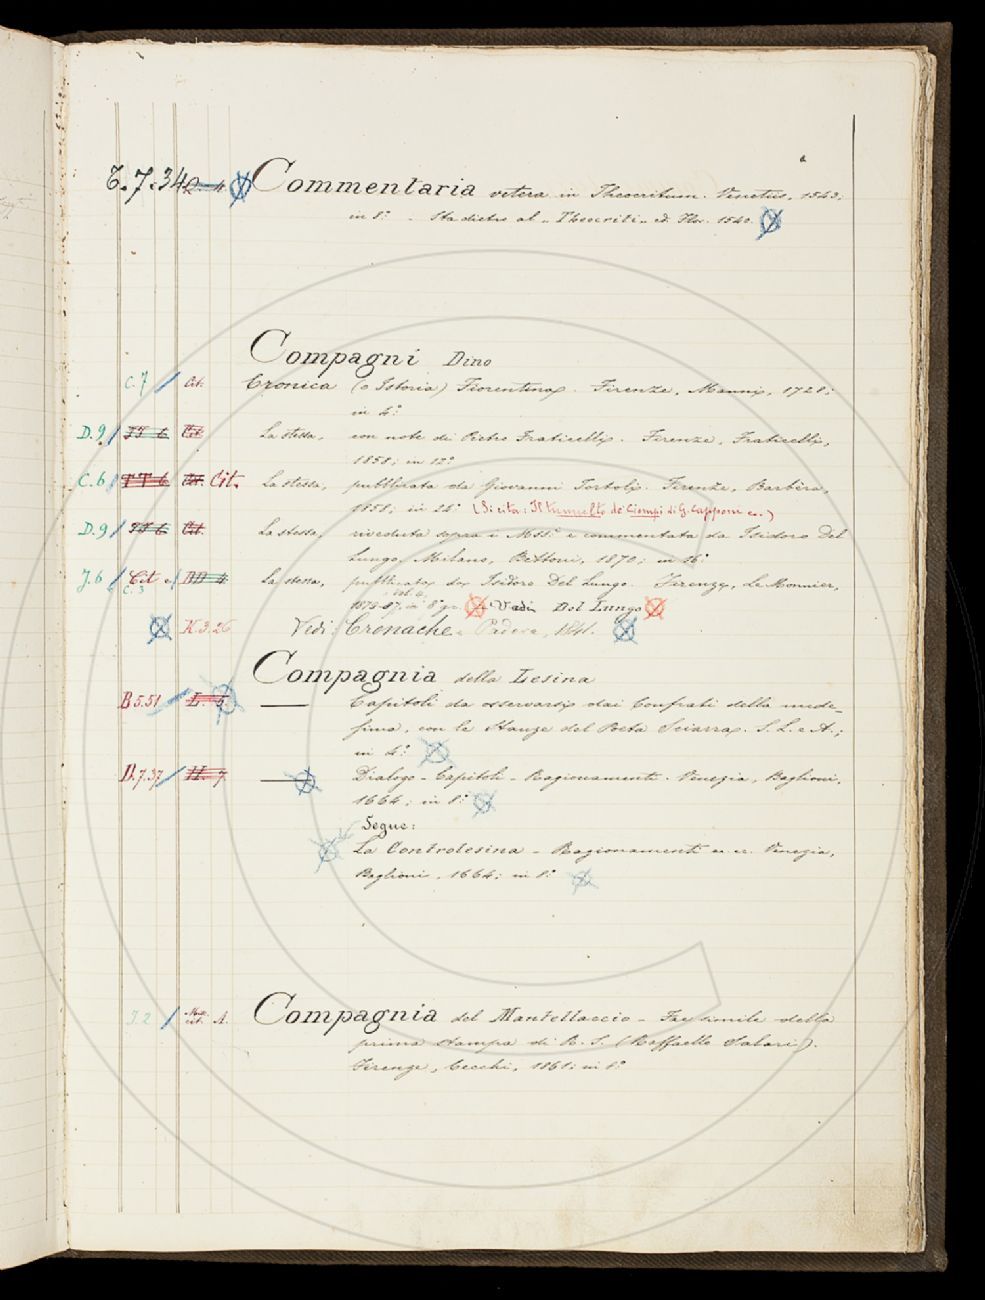 T.7.34 Commentaria vetera in Theocritum. Venetiis, 1543;
in 8.° - Sta dietro al "Theocriti" ed. Flor. 1540.
Compagni Dino
C.7 / Cit. Cronica (o Istoria) Fiorentina. Firenze, Manni, 1728;
in 4.°
D.9 / Cit. La stessa, con note di Pietro Fraticelli. Firenze, Fraticelli,
1858; in 12.°
C.6 / Cit. La stessa, pubblicata da Giovanni Tortoli. Firenze, Barbèra,
1858; in (Si cita: Il tumulto de' Ciompi di G. Capponi ec.)
D.9 / Cit. La stessa, riveduta sopra i Mss.i e commentata da Isidoro Del
Lungo. Milano, Bettoni, 1870; in 16.°
J.6 / Cit e / C.3 La stessa, pubblicata da Isidoro Del Lungo. Firenze, Le Monnier,
1879-87, vol. in 8.° gr. Vedi Del Lungo
K.3.26 Vedi: Cronache. Padova, 1841.
Compagnia della Lesina
B.5.51 / L. 5. — Capitoli da osservarsi dai Confrati della mede-
sima, con le Stanze del Poeta Sciarra. S. L. e A.;
in 4.°
D.7.37 / H. 7 — Dialogo - Capitoli - Ragionamenti. Venezia, Baglioni,
1664; in 8.°
Segue:
La Contralesina - Ragionamenti ec. ec. Venezia,
Baglioni, 1664; in 8.°
J.2 / cit. A. Compagnia del Mantellaccio - Facsimile della
prima stampa di R. S. (Raffaello Salari).
Firenze, Cecchi, 1861; in 8.°